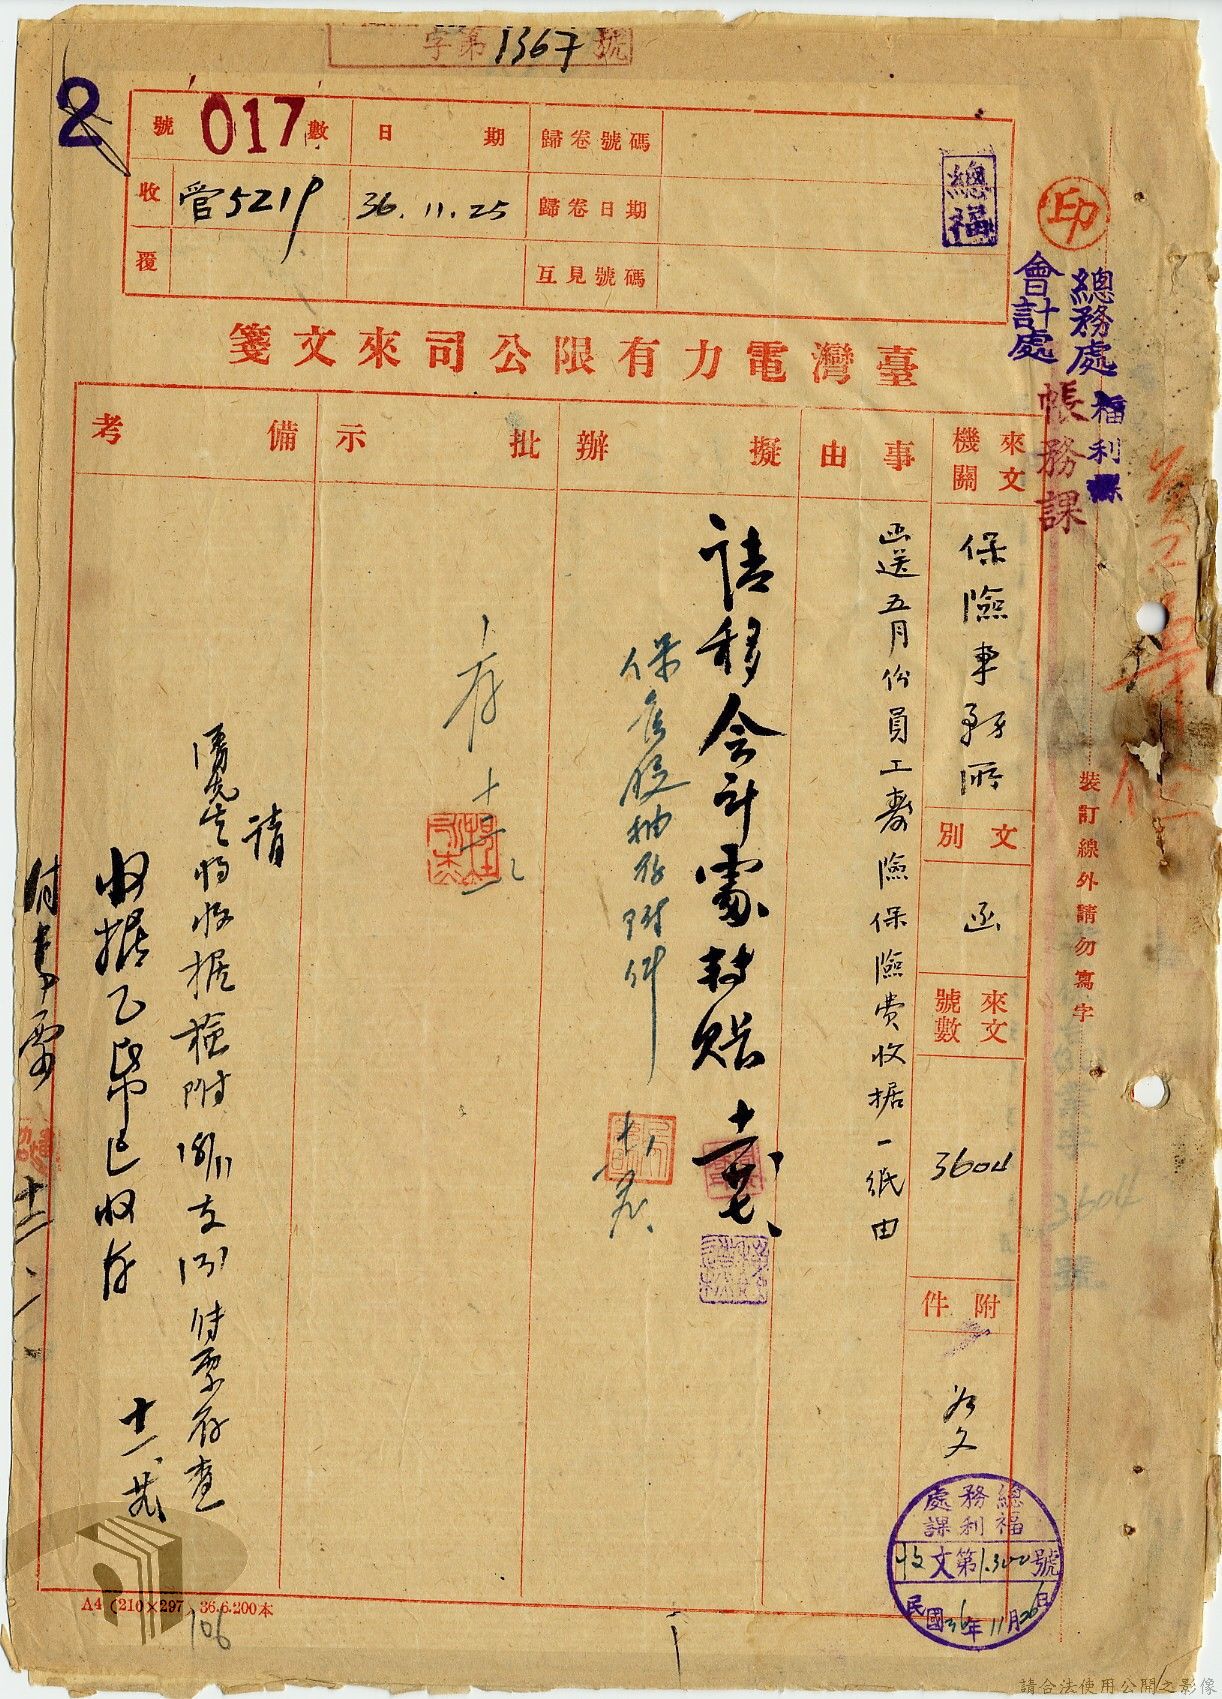 字第1367號
2
號 017 數
日期
歸卷號碼
收
管5219
36.11.25
歸卷日期
覆
互見號碼
總福
印
總務處 福利課
會計處 帳務課
臺灣電力有限公司來文箋
來文機關
保險事務所
文別
函
來文號數
3604
附件
事由
函送五月份員工壽險保險費收据一紙由
擬辦
請移會計處轉賬
批示
存
備考
請
先生將收据檢附18/11支
傳票存查
收据乙帋已收存
裝訂線外請勿寫字
3604
號
總務處
福利課
收文第1300號
民國36年11月26日
A4 (210×297) 36.6.200本
106
請合法使用公開之影像